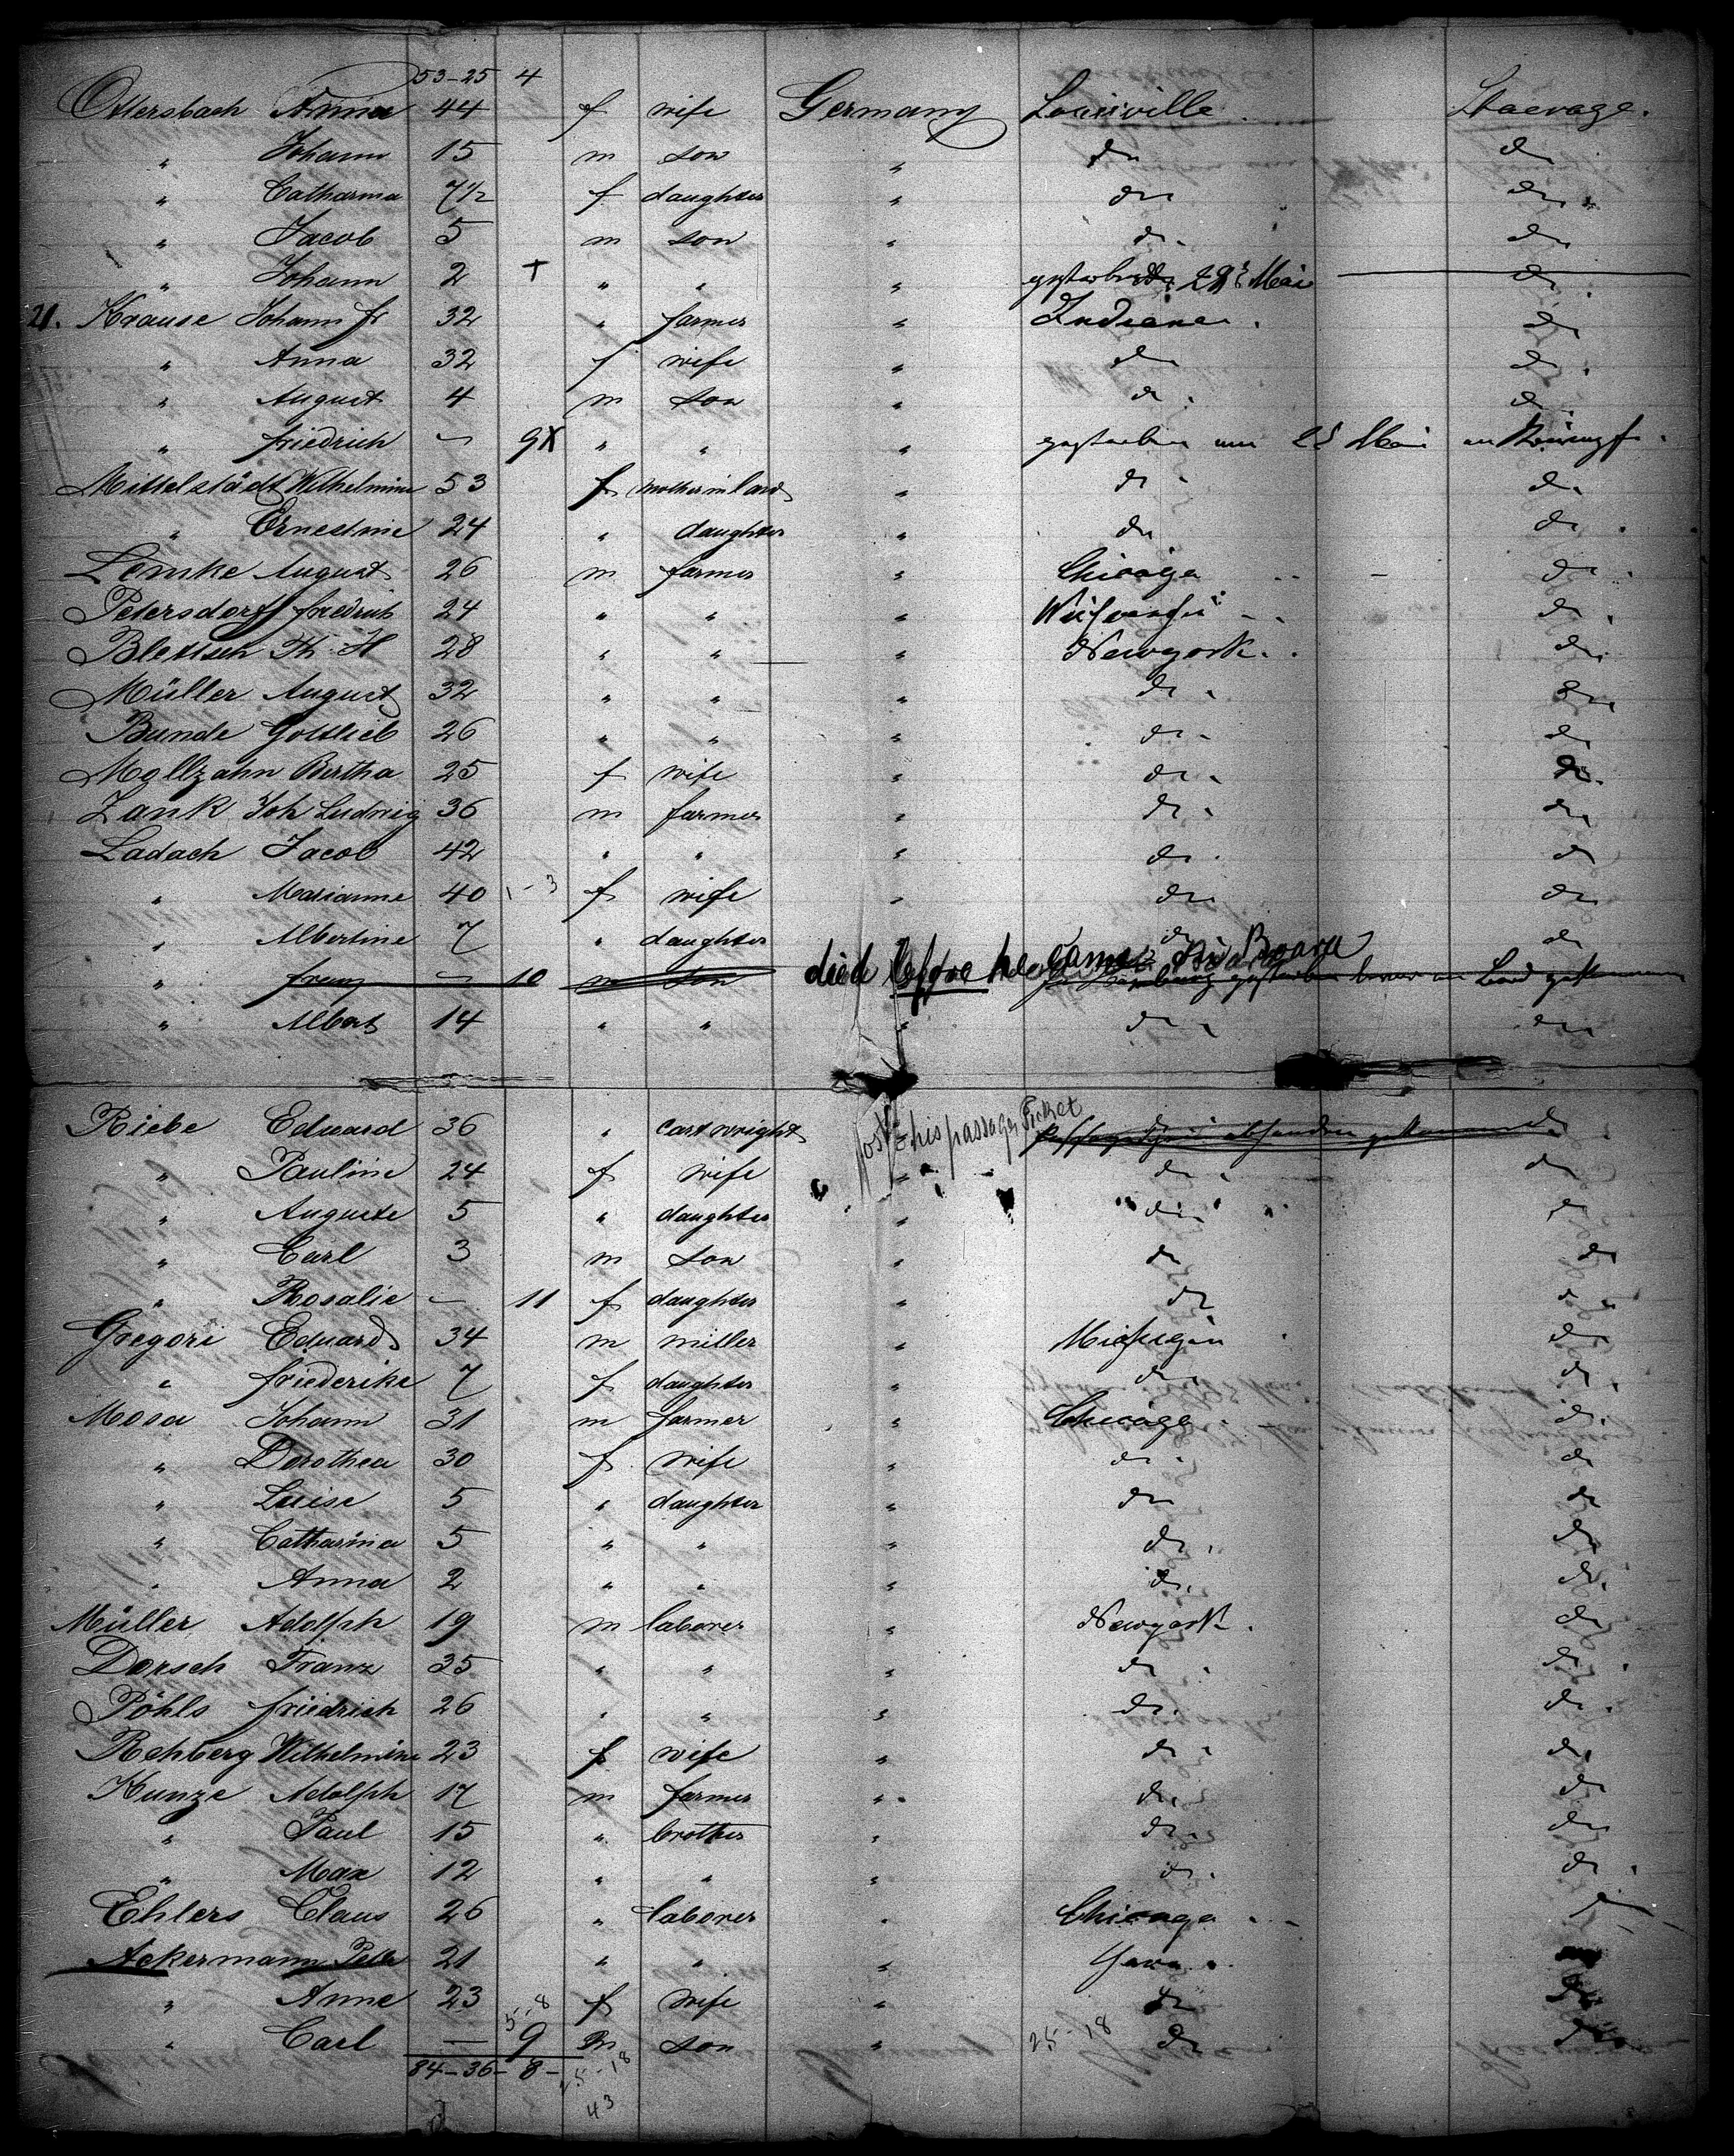 53-25 4
Ottersbach Anna 44 f wife Germany Louisville Staerage.
" Johann 15 m son " do do
" Catharina 7½ f daughter " do do
" Jacob 5 m son " do do
" Johann 2 + " " " gestorben 28 Mai do
21. Krause Johann fr 32 " farmer " Indiana. do
" Anna 32 f wife " do do
" August 4 m son " do do
" friedrich - 9X " " gestorben am 28 Mai an
Mittelstädt Wilhelmine 53 f mother in law " do do
" Ernestine 24 " daughter " do do
Lemke August 26 m farmer " Chicago do
Petersdorff friedrich 24 " " " do
Blettsch Th. H 28 " " " Newyork. do
Müller August 32 " " " do do
Bunde Gottlieb 26 " " " do do
Mollzahn Bertha 25 f wife " do do
Zank Joh Ludwig 36 m farmer " do do
Ladach Jacob 42 " " " do do
" Marianne 40 1-3 f wife " do do
" Albertine 7 " daughter do do
" franz - 10 m son died before he came on Board gestorben an Bord gekommen
" Albert 14 " " " do do
Riebe Eduard 36 " cartwright lost his passage Ticket do
" Pauline 24 f wife " do do
" Auguste 5 " daughter " do do
" Carl 3 m son " do do
" Rosalie - 11 f daughter " do do
Gregori Eduard 34 m miller " Michigan do
" friederike 7 f daughter " do do
Mosa Johann 31 m farmer " Chicago do
" Dorothea 30 f wife " do do
" Luise 5 " daughter " do do
" Catharina 5 " " " do do
" Anna 2 " " " do do
Müller Adolph 19 m laborer " Newyork. do
Dorsch Franz 35 " " " do do
Pöhls friedrich 26 " " " do do
Rehberg Wilhelmine 23 f wife " do do
Kunze Adolph 17 m farmer " do do
" Paul 15 " brother " do do
" Max 12 " " " do do
Ehlers Claus 26 " laborer " Chicago do
Ackermann Peter 21 " " "
" Anne 23 f wife " do do
5-8
" Carl - 9 m son " 25-18 do do
84-36-8- 25-18
43